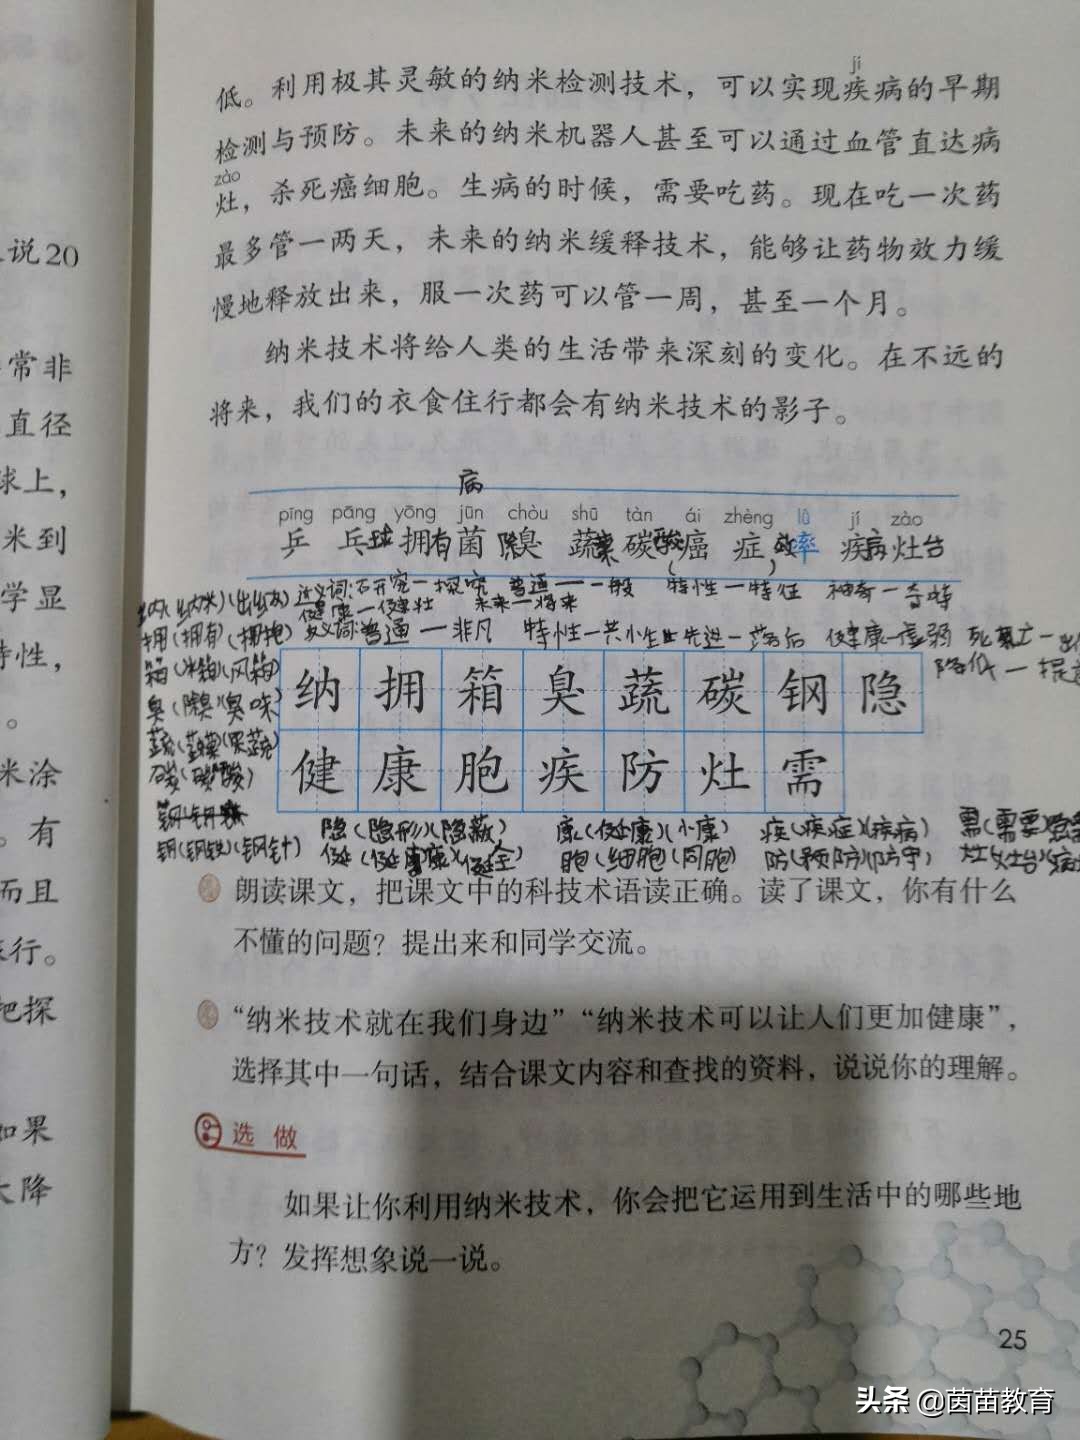 jí
低。利用极其灵敏的纳米检测技术，可以实现疾病的早期
检测与预防。未来的纳米机器人甚至可以通过血管直达病
zào
灶，杀死癌细胞。生病的时候，需要吃药。现在吃一次药
最多管一两天，未来的纳米缓释技术，能够让药物效力缓
慢地释放出来，服一次药可以管一周，甚至一个月。
纳米技术将给人类的生活带来深刻的变化。在不远的
将来，我们的衣食住行都会有纳米技术的影子。
说20
常非
直径
球上，
米到
学显
特性，
。
米涂
。有
而且
旅行。
把探
如果
大降
病
pīng pāng yōng jūn chòu shū tàn ái zhèng lǜ jí zào
乒 乓球 拥有菌 臭 蔬 碳酸癌 症 效率 疾病灶台
近义词：研究—探究 普通—一般 特性—特征 神奇—奇特
健康—健壮 未来—将来
反义词：普通—非凡 特性—共性 先进—落后 健康—虚弱
降低—
拥（拥有）（拥抱）
箱（木箱）（风箱）
臭（臭味）
蔬（果蔬）
碳（碳酸）
钢（钢铁）（钢针）
纳 拥 箱 臭 蔬 碳 钢 隐
健 康 胞 疾 防 灶 需
隐（隐形）（隐蔽） 康（健康）（小康） 疾（疾症）（疾病） 需（需要）
健（健康）（健全） 胞（细胞）（同胞） 防（预防）（防守） 灶（灶台）
朗读课文，把课文中的科技术语读正确。读了课文，你有什么
不懂的问题？提出来和同学交流。
“纳米技术就在我们身边”“纳米技术可以让人们更加健康”，
选择其中一句话，结合课文内容和查找的资料，说说你的理解。
选做
如果让你利用纳米技术，你会把它运用到生活中的哪些地
方？发挥想象说一说。
25
头条 @茵苗教育